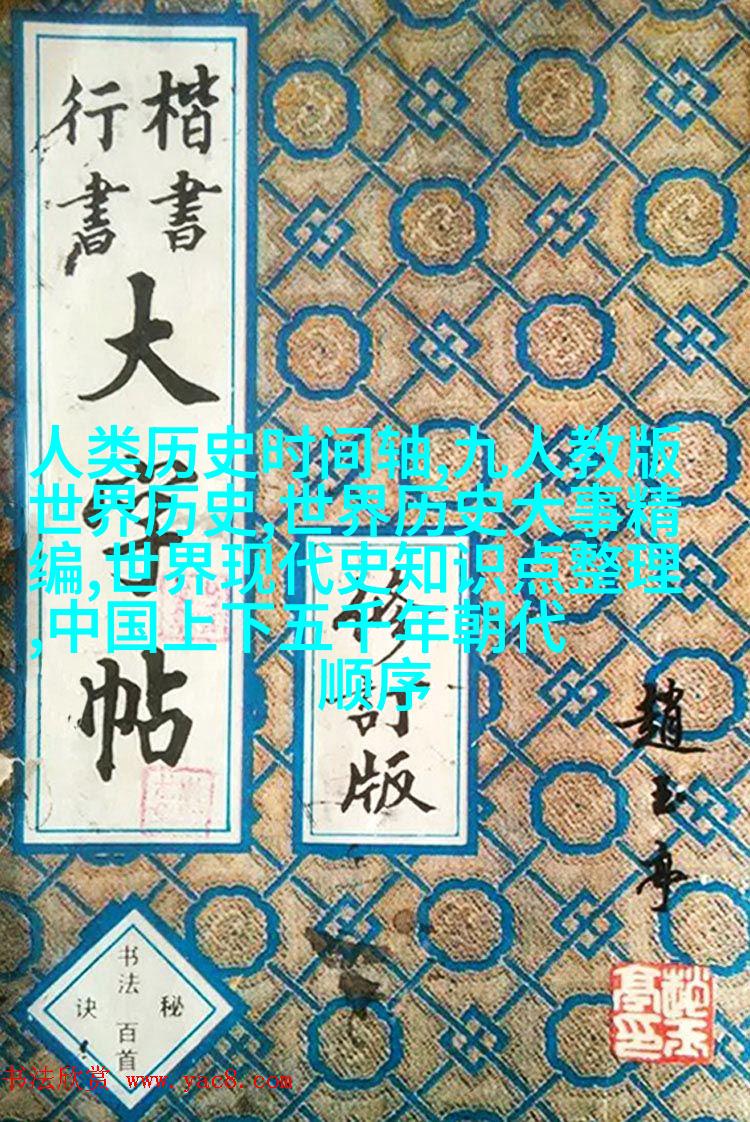 楷書
行書
大字帖
人类历史时间轴,九人教版
世界历史,世界历史大事精
编,世界现代史知识点整理
,中国上下五千年朝代
顺序
修訂版
趙玉亭
书法百首
秘诀
书法欣赏 www.yac8.com